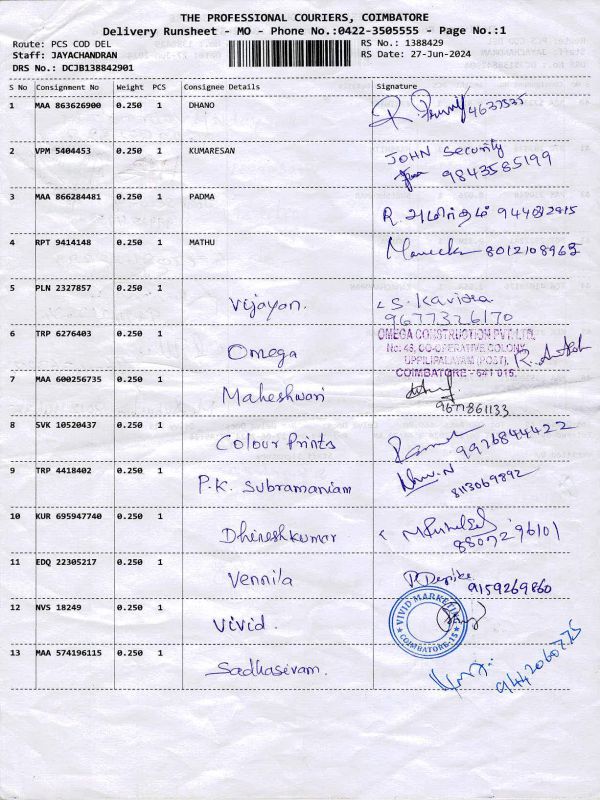 THE PROFESSIONAL COURIERS, COIMBATORE
Delivery Runsheet - MO - Phone No.:0422-3505555 - Page No.:1
Route: PCS COD DEL RS No.: 1388429
Staff: JAYACHANDRAN RS Date: 27-Jun-2024
DRS No.: DCJB138842901
S No Consignment No Weight PCS Consignee Details Signature
1 MAA 863626900 0.250 1 DHANO
2 VPM 5404453 0.250 1 KUMARESAN JOHN Security
9843585199
3 MAA 866284481 0.250 1 PADMA
4 RPT 9414148 0.250 1 MATHU
5 PLN 2327857 0.250 1 Vijayan. S. Kavidra
9677326170
6 TRP 6276403 0.250 1 Omega OMEGA CONSTRUCTION PVT.LTD.
No: 46, CO-OPERATIVE COLONY,
UPPILIPALAYAM (POST),
COIMBATORE - 641 015.
7 MAA 600256735 0.250 1 Maheshwari
8 SVK 10520437 0.250 1 Colour Prints 9976844422
9 TRP 4418402 0.250 1 P.K. Subramaniam 8113069892
10 KUR 695947740 0.250 1 Dhineshkumar
11 EDQ 22305217 0.250 1 Vennila 9159269860
12 NVS 18249 0.250 1 Vivid. VIVID MARKETING
COIMBATORE-15
13 MAA 574196115 0.250 1 Sadhasivam. 9442060775